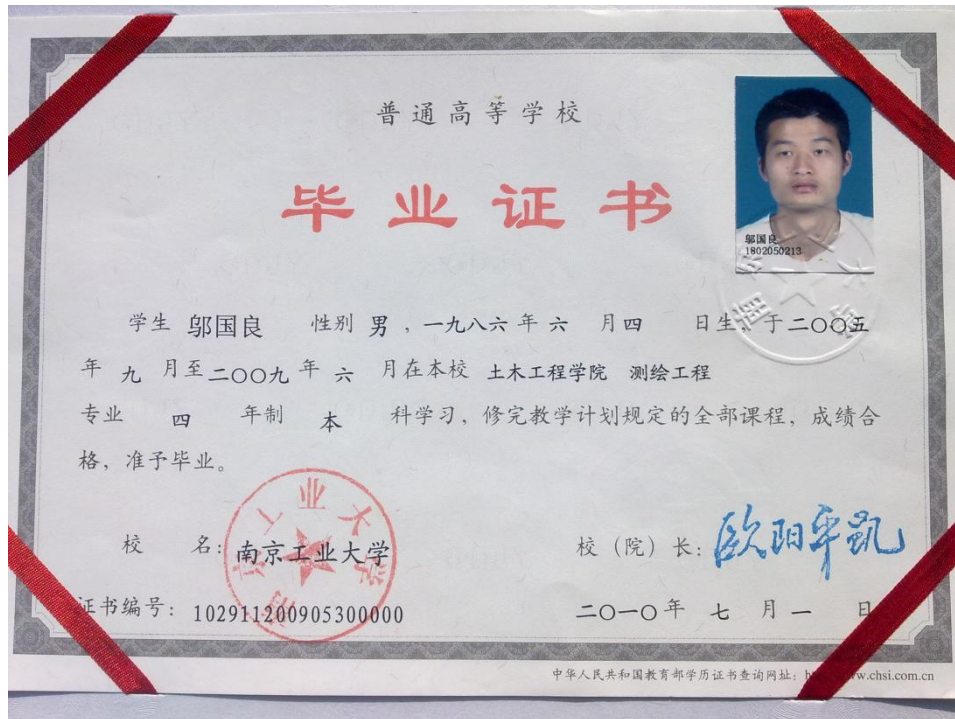 普通高等学校
毕业证书
邬国良
1802050213
学生 邬国良 性别 男 ，一九八六 年 六 月 四 日生，于二〇〇五
年 九 月至 二〇〇九 年 六 月在本校 土木工程学院 测绘工程
专业 四 年制 本 科学习，修完教学计划规定的全部课程，成绩合
格，准予毕业。
校 名：南京工业大学
南京工业大学
校（院）长：欧阳平凯
证书编号：102911200905300000
二〇一〇年 七 月 一 日
中华人民共和国教育部学历证书查询网址：w.chsi.com.cn